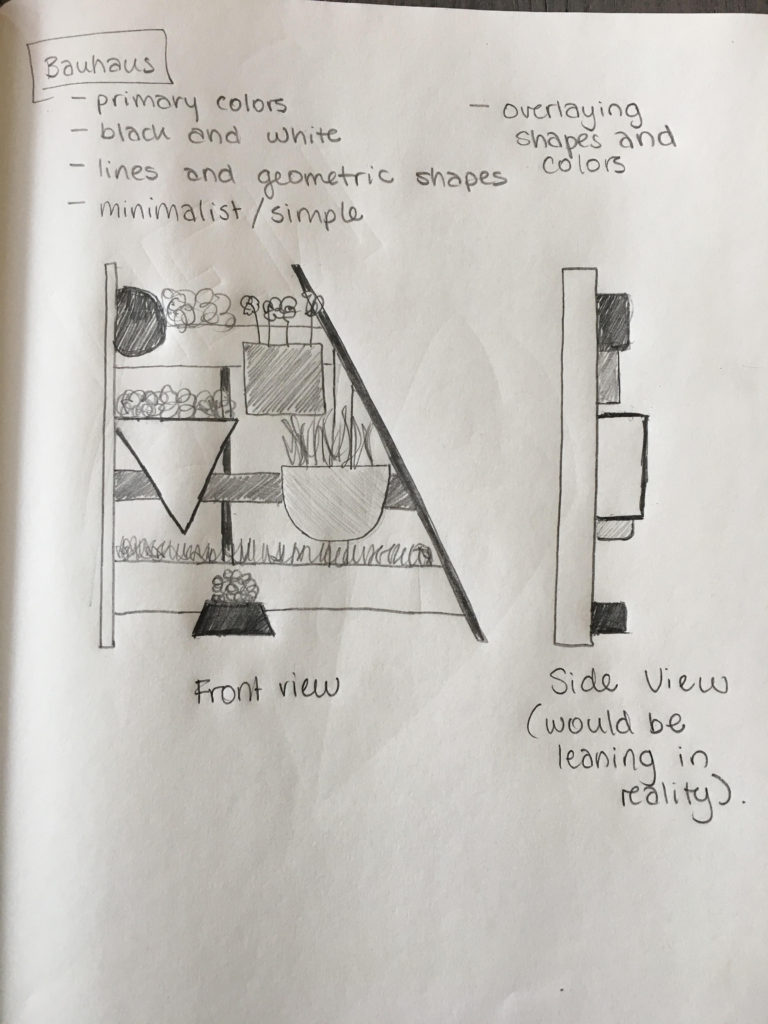 Bauhaus
- primary colors
- black and white
- lines and geometric shapes
- minimalist/simple
- overlaying
shapes and
colors
Front view
Side View
(would be
leaning in
reality).